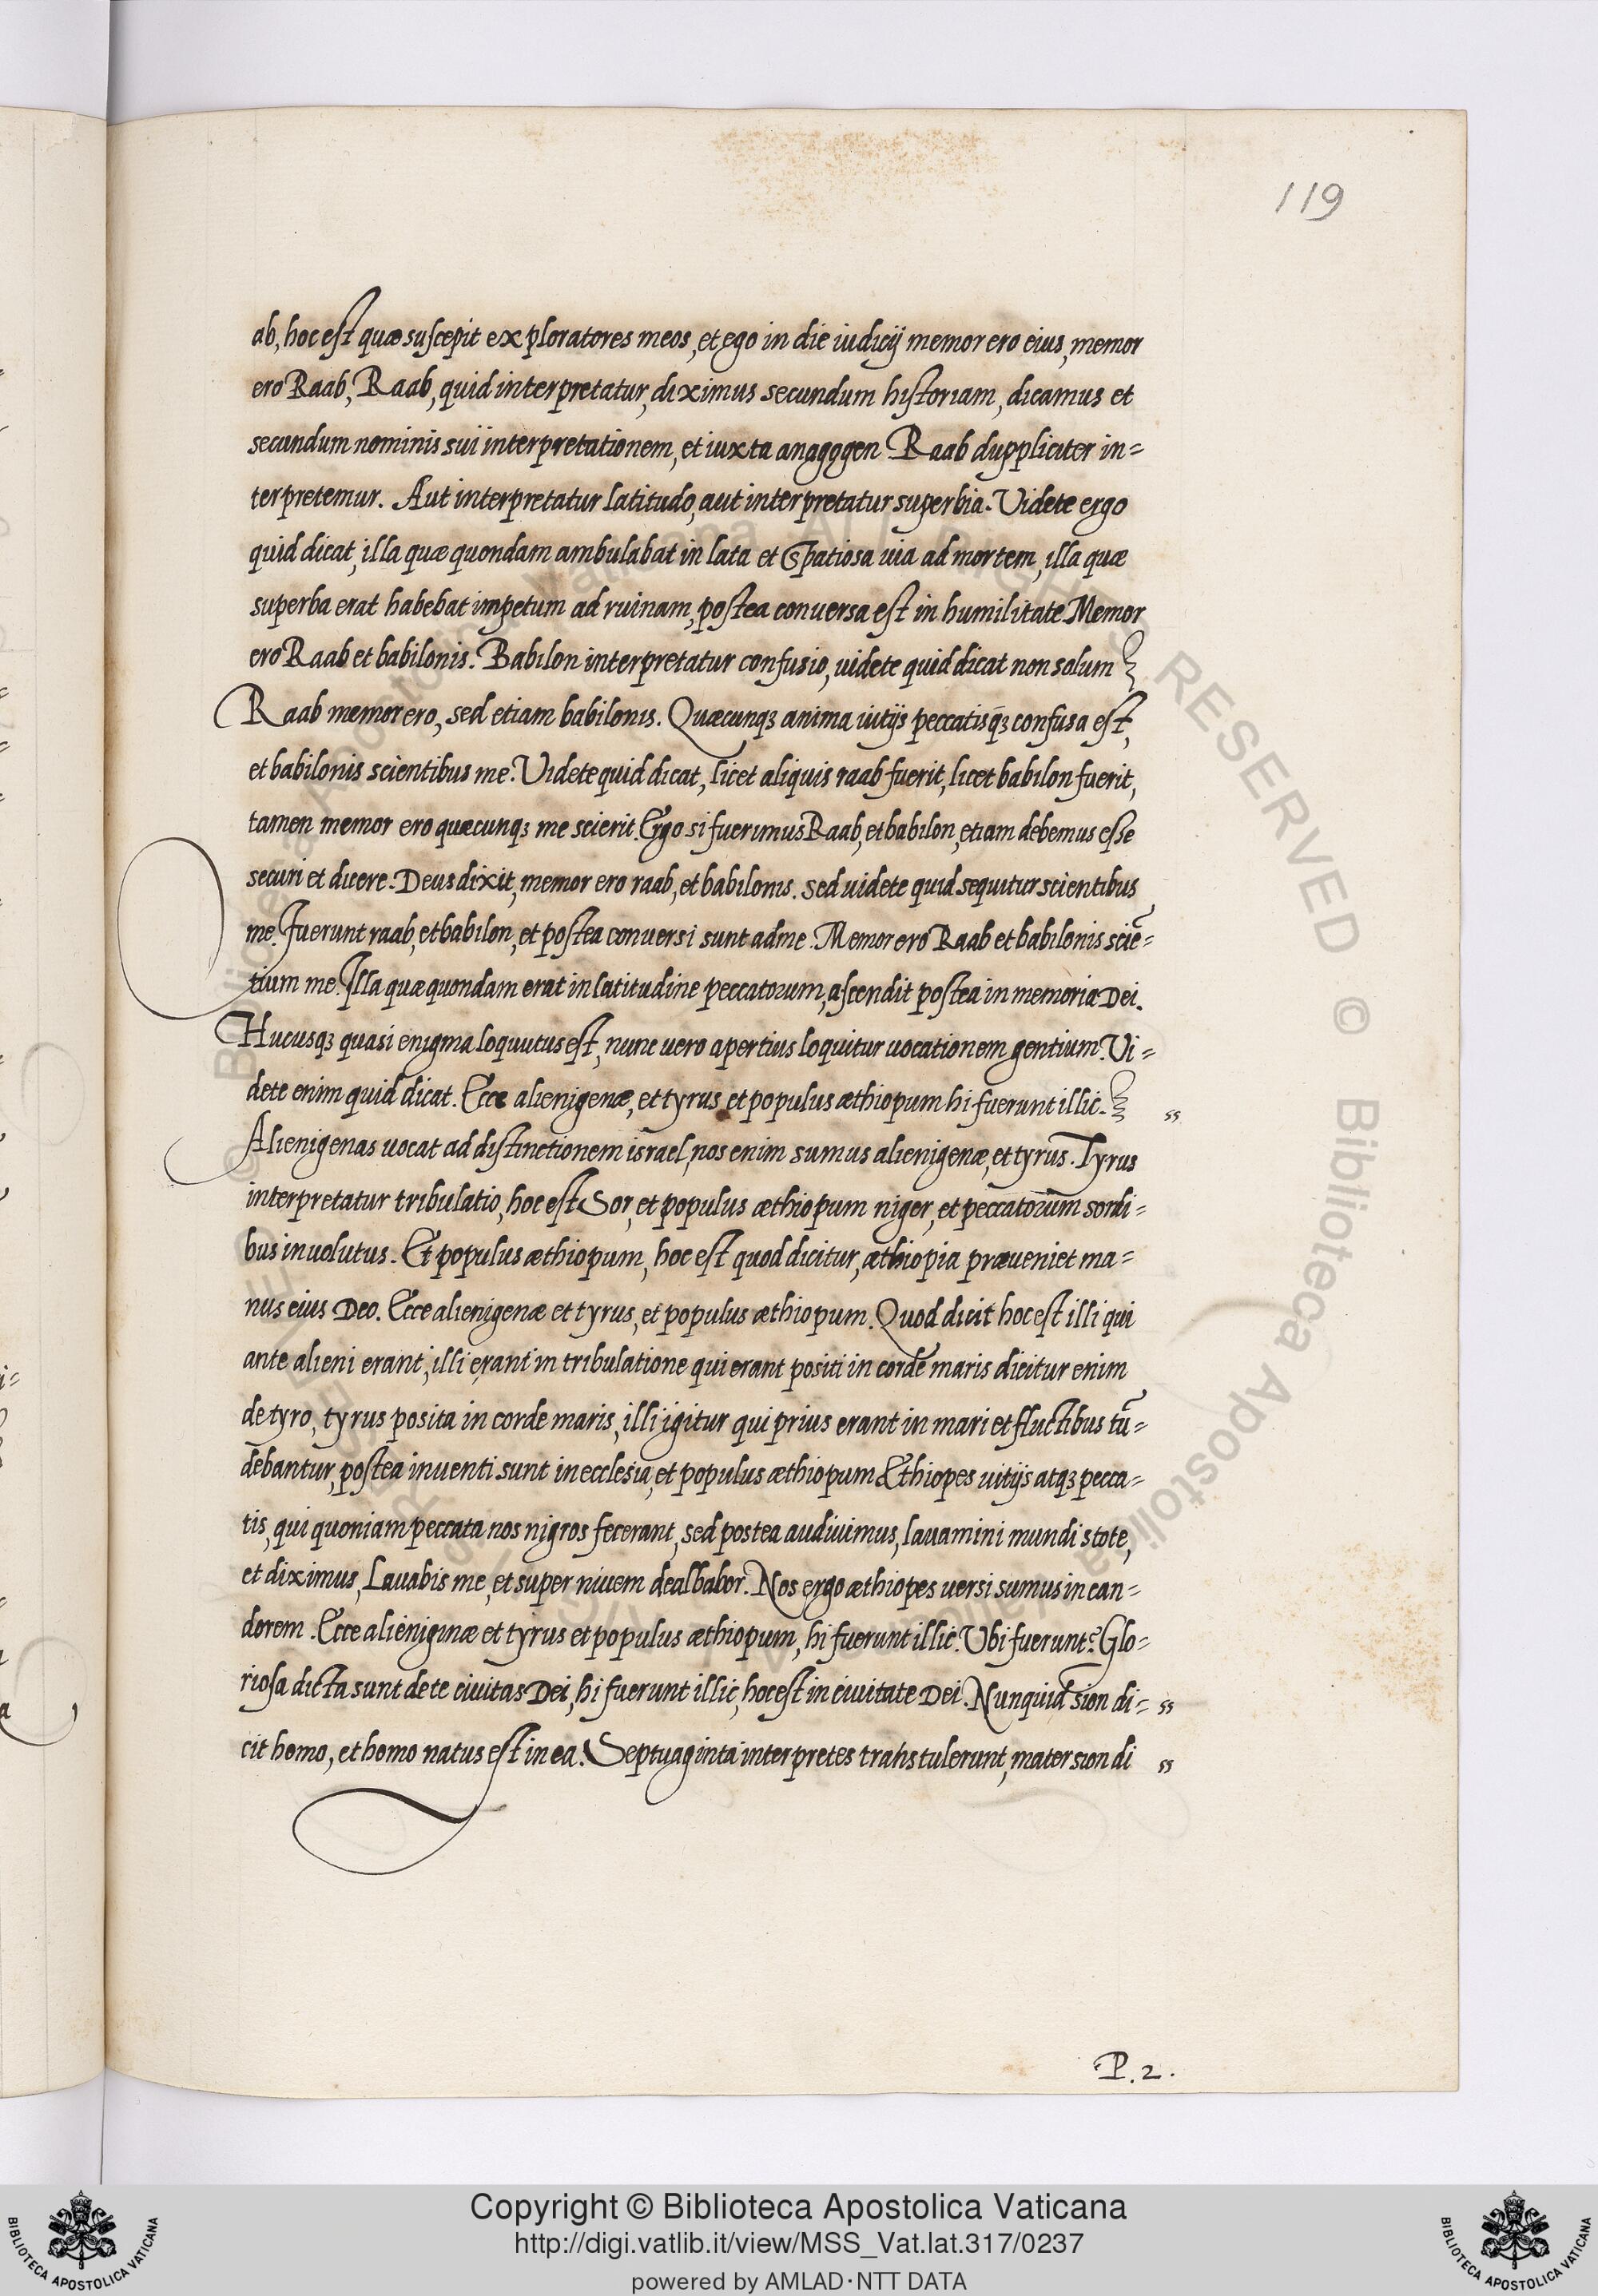 119
ab, hoc est quæ suscepit exploratores meos, et ego in die iudicij memor ero eius, memor
ero Raab, Raab, quid interpretatur, diximus secundum historiam, dicamus et
secundum nominis sui interpretationem, et iuxta anagogen Raab duppliciter in=
terpretemur. Aut interpretatur latitudo, aut interpretatur superbia. Videte ergo
quid dicat, illa quæ quondam ambulabat in lata et spatiosa uia ad mortem, illa quæ
superba erat habebat impetum ad ruinam, postea conuersa est in humilitate. Memor
ero Raab et babilonis. Babilon interpretatur confusio, uidete quid dicat non solum
Raab memor ero, sed etiam babilonis. Quæcunqꝫ anima uitijs peccatisqꝫ confusa est,
et babilonis scientibus me. Videte quid dicat, licet aliquis raab fuerit, licet babilon fuerit,
tamen memor ero quæcunqꝫ me scierit. Ergo si fuerimus Raab, et babilon, etiam debemus esse
securi et dicere. Deus dixit, memor ero raab, et babilonis. sed uidete quid sequitur scientibus
me. Fuerunt raab, et babilon, et postea conuersi sunt ad me. Memor ero Raab et babilonis sciē=
tium me. Illa quæ quondam erat in latitudine peccatorum, ascendit postea in memoria Dei.
Hucusqꝫ quasi enigma loquutus est, nunc uero apertius loquitur uocationem gentium. Vi=
dete enim quid dicat. Ecce alienigenæ, et tyrus et populus æthiopum hi fuerunt illic. ss
Alienigenas uocat ad distinctionem israel, nos enim sumus alienigenæ, et tyrus. Tyrus
interpretatur tribulatio, hoc est Sor, et populus æthiopum niger, et peccatorum sordi=
bus inuolutus. Et populus æthiopum, hoc est quod dicitur, æthiopia præueniet ma=
nus eius Deo. Ecce alienigenæ et tyrus, et populus æthiopum. Quod dicit hoc est illi qui
ante alieni erant, illi erant in tribulatione qui erant positi in corde maris dicitur enim
de tyro, tyrus posita in corde maris, illi igitur qui prius erant in mari et fluctibus tū=
debantur, postea inuenti sunt in ecclesia, et populus æthiopum Æthiopes uitijs atqꝫ pecca=
tis, qui quoniam peccata nos nigros fecerant, sed postea audiuimus, lauamini mundi stote,
et diximus, Lauabis me, et super niuem dealbabor. Nos ergo æthiopes uersi sumus in can=
dorem. Ecce alieniginæ et tyrus et populus æthiopum, hi fuerunt illic. Vbi fuerunt? Glo=
riosa dicta sunt de te ciuitas Dei, hi fuerunt illic, hoc est in ciuitate Dei. Nunquid sion di= ss
cit homo, et homo natus est in ea. Septuaginta interpretes transtulerunt, mater sion di ss
P. 2.
Copyright © Biblioteca Apostolica Vaticana
http://digi.vatlib.it/view/MSS_Vat.lat.317/0237
powered by AMLAD·NTT DATA
BIBLIOTECA APOSTOLICA VATICANA
BIBLIOTECA APOSTOLICA VATICANA